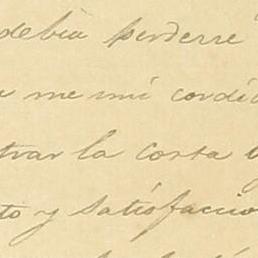 debia perderre
me mi cordi
trar la costa
to y satisfaccio